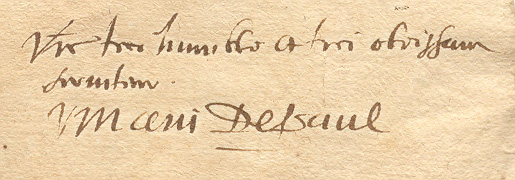 Vre tres humble et tres obeissant
serviteur.
Vincent DePaul